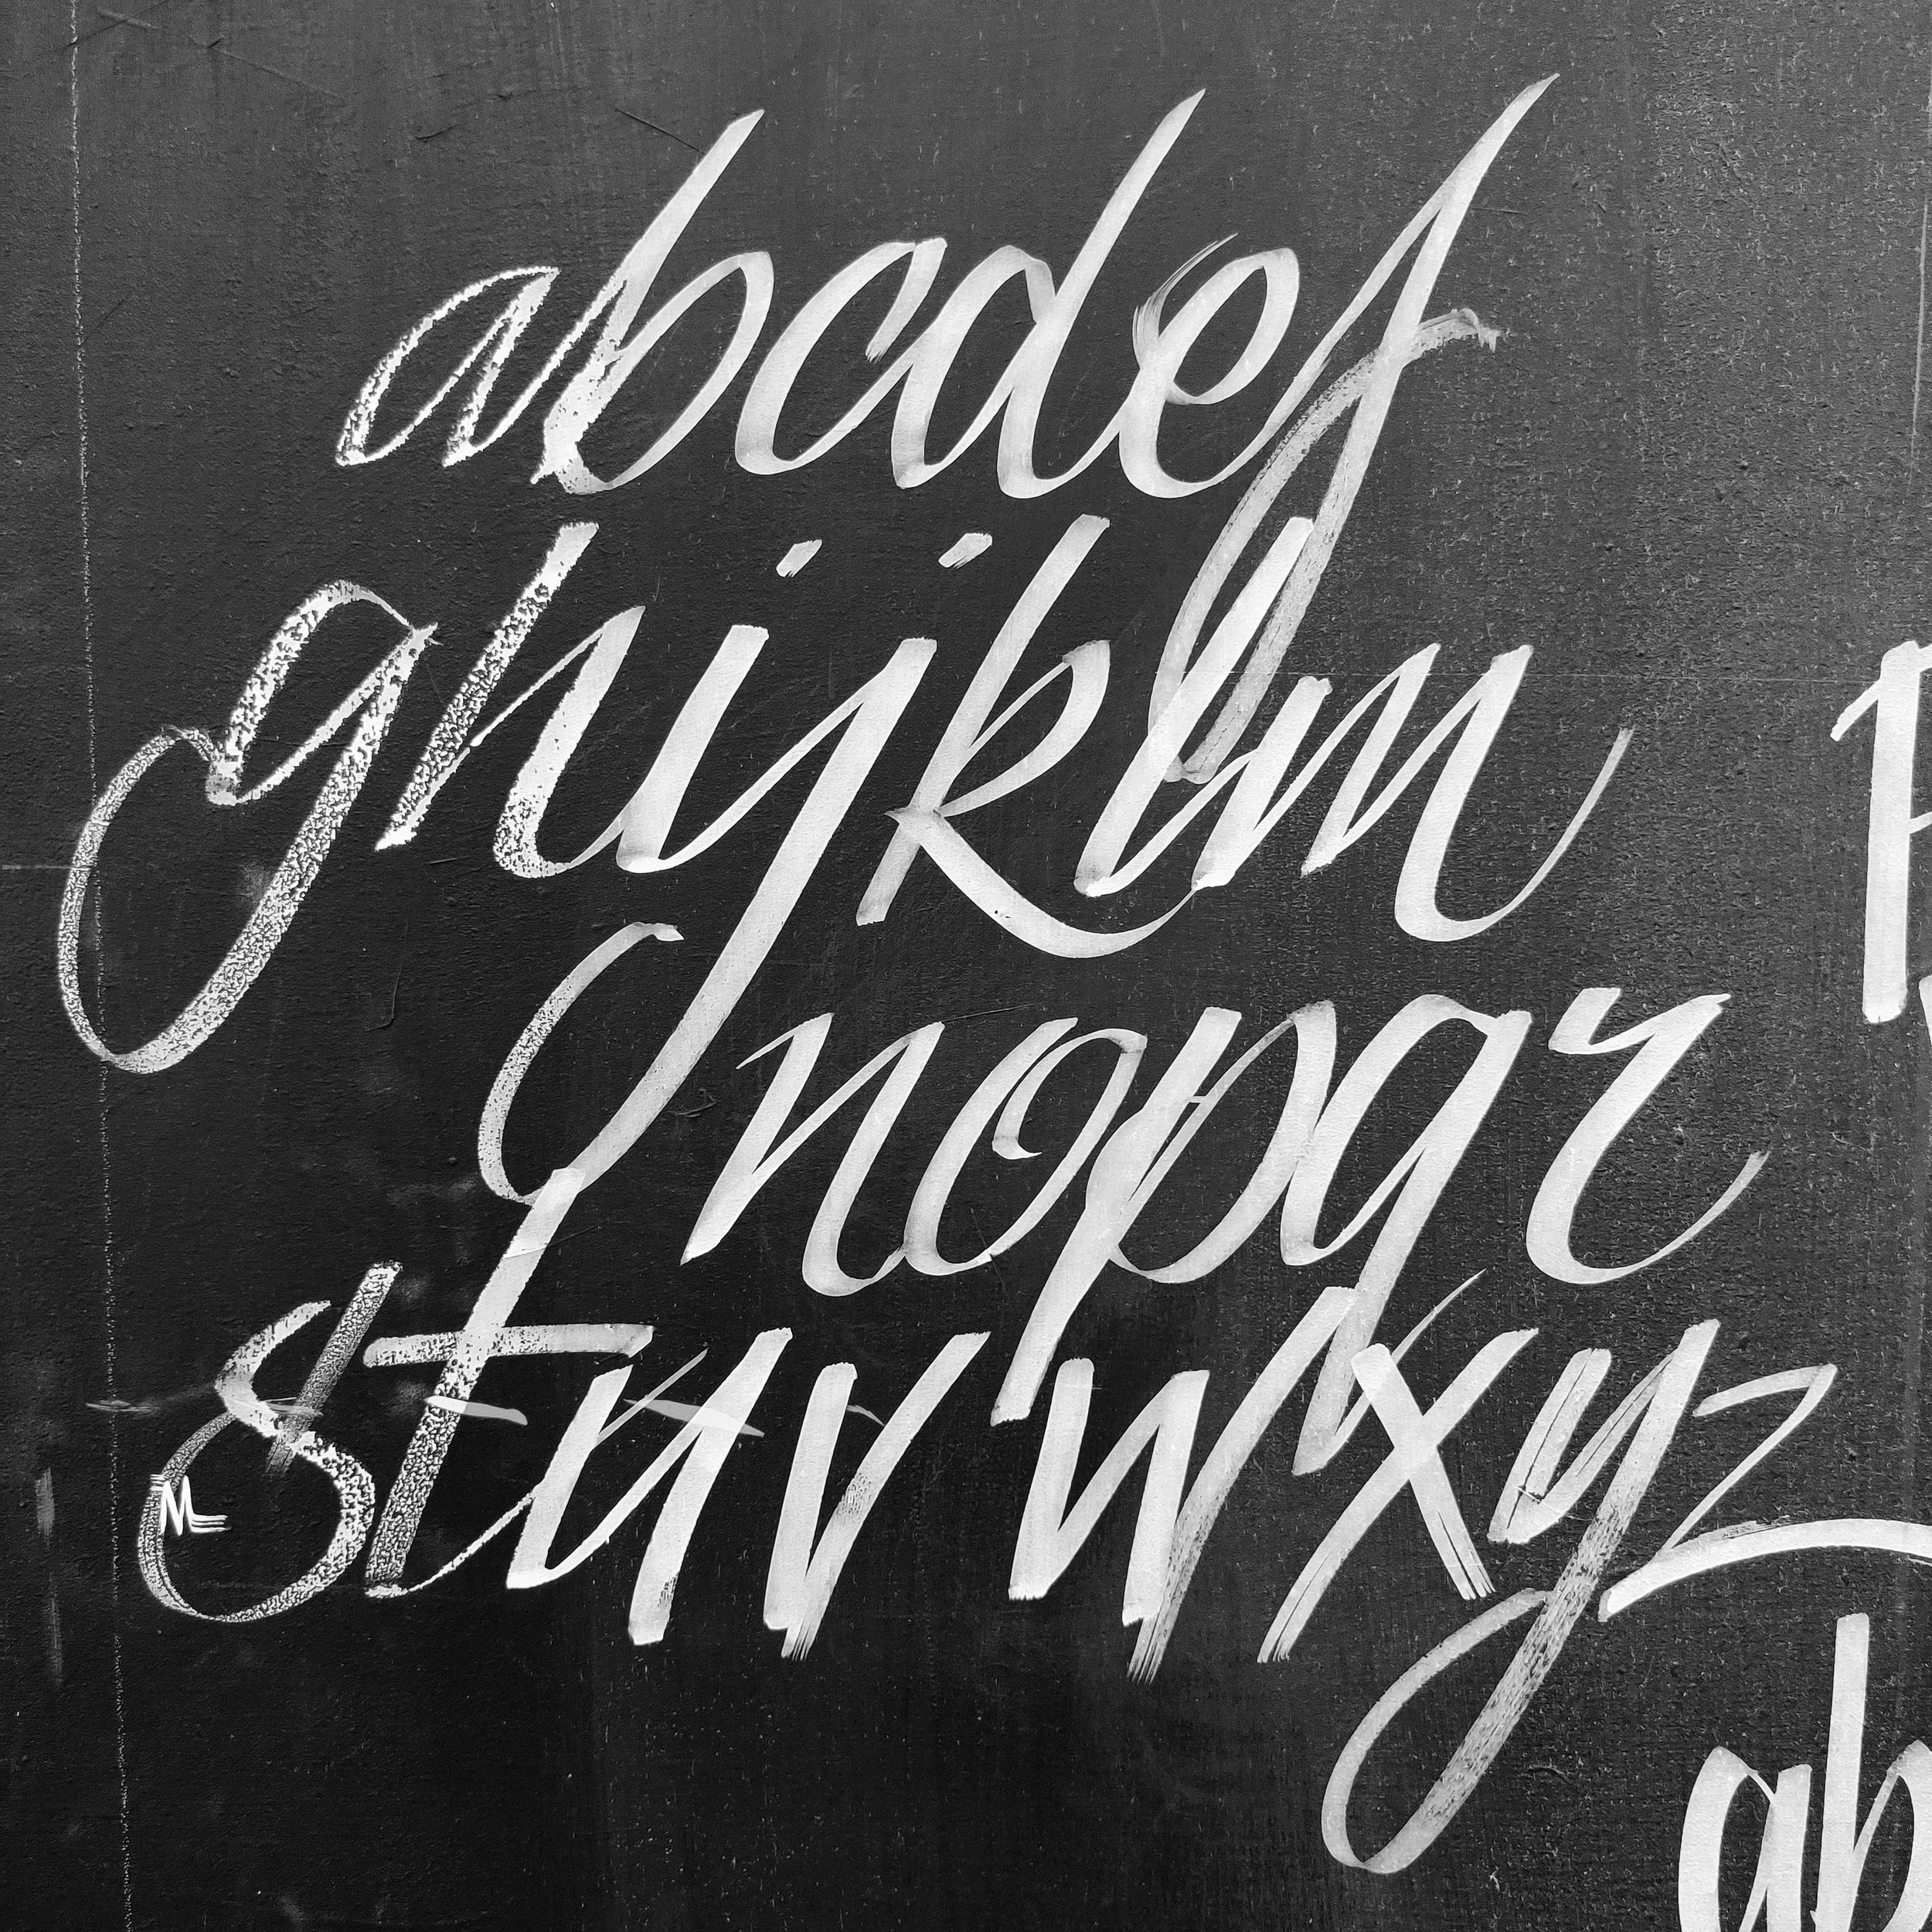 abcdef
ghijklm
nopqr
stuvwxyz
ML
ab